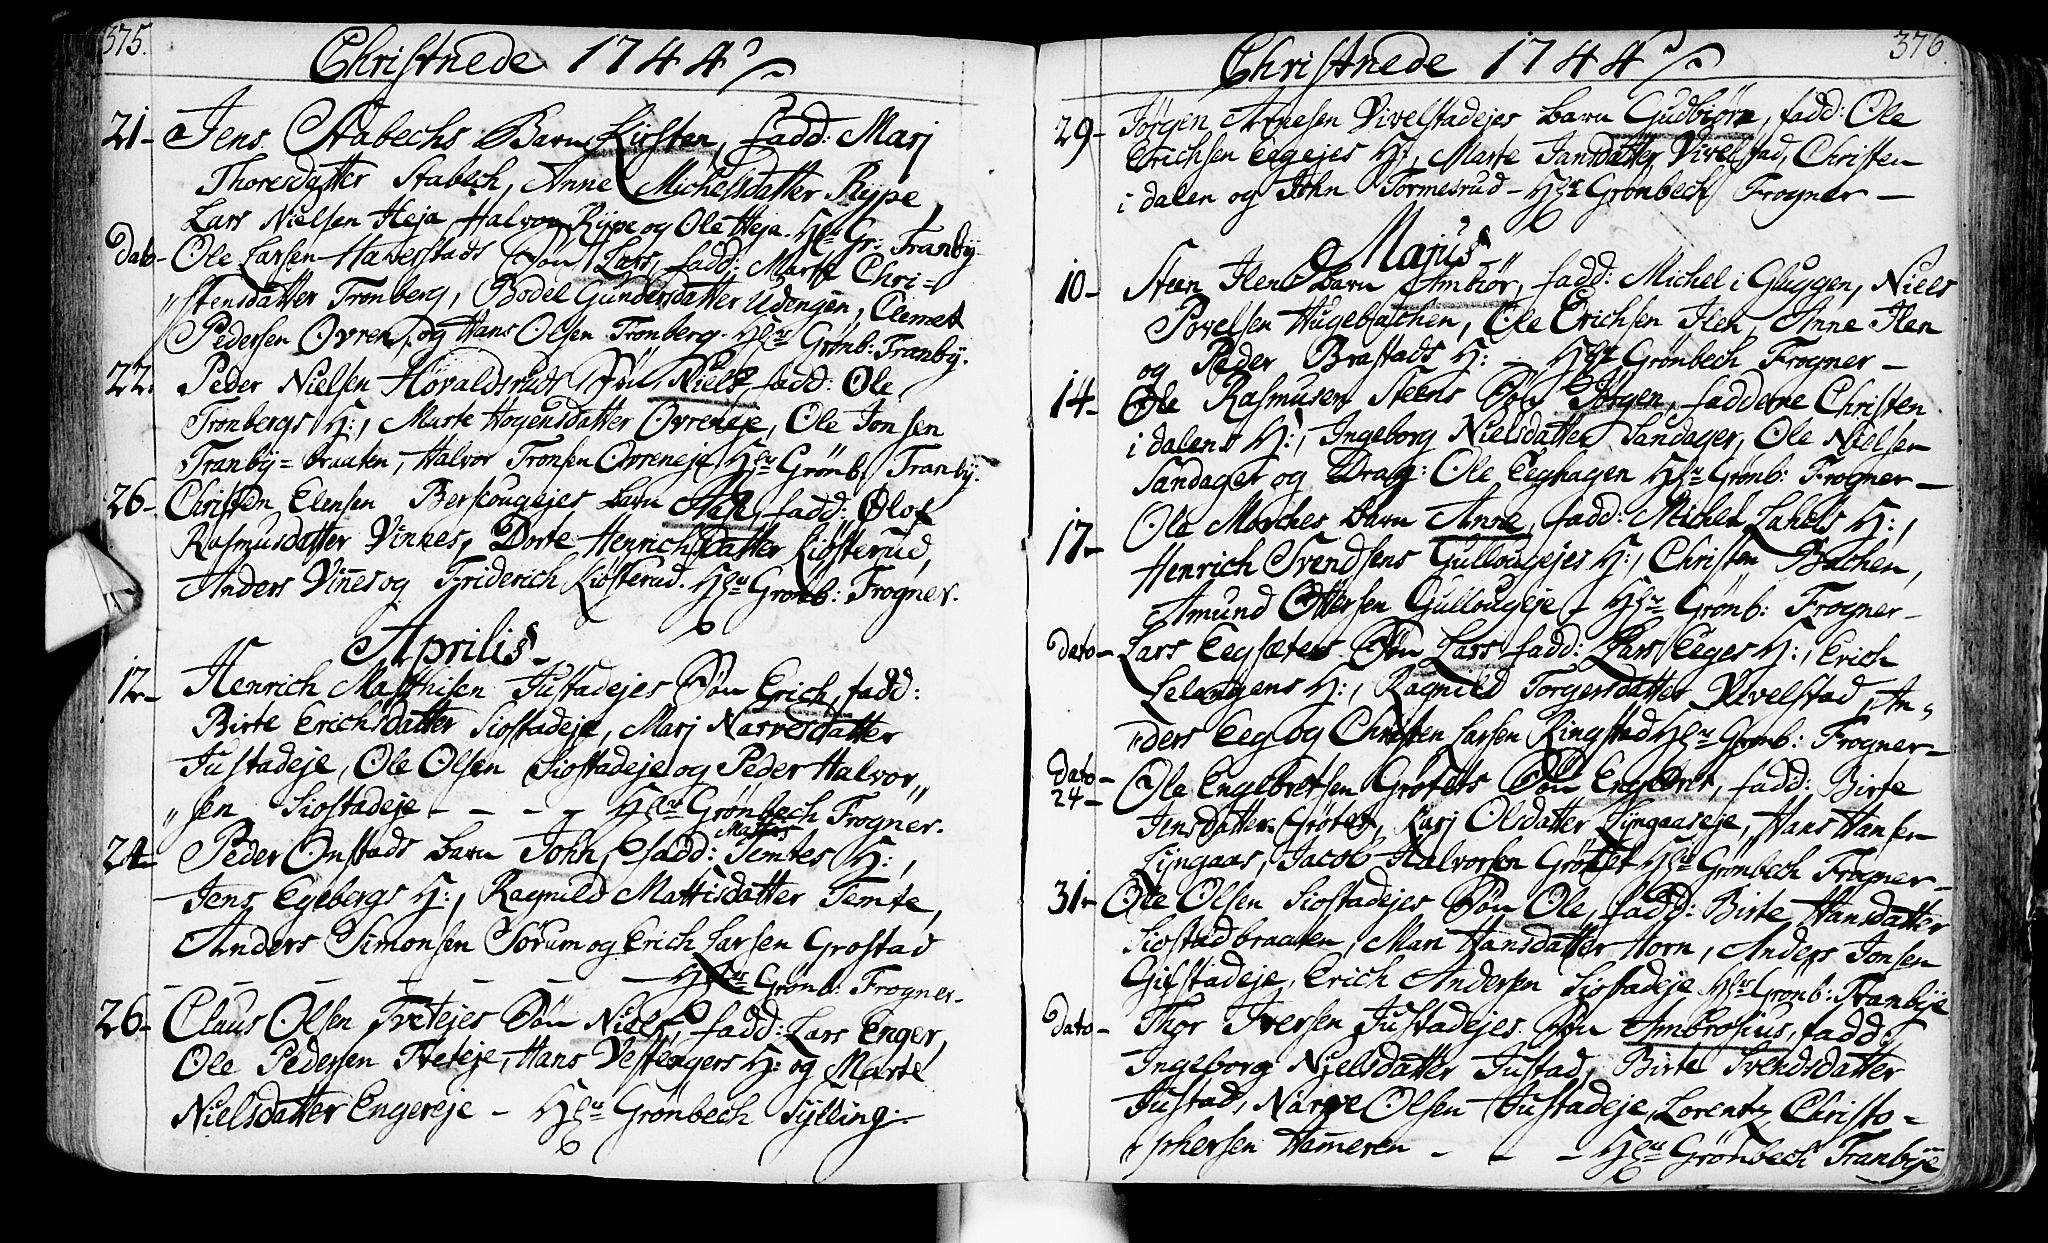 375.
Christnede 1744
21- Jens Stabechs Barn Kirsten, fadd: Marj
Thoresdatter Stabech, Anne Michelsdatter Rype,
Lars Nielsen Heja Halvor Rype og Ole Heja. Hr Gr: Tranby.
dato- Ole Larsen Haverstads Søn Lars, fadd: Marte Chri=
stensdatter Tronberg, Bodel Gundersdatter Udengen, Clemet
Pedersen Ovren, og Hans Olsen Tronberg. Hr Grønb: Tranby.
22. Peder Nielsen Hovaldsruds Søn Niels fadd: Ole
Tronbergs H:, Marte Hogensdatter Ovreneje, Ole Jonsen
Tranby=braaten, Halvor Tronsen Ovreneje Hr Grønb: Tranby.
26- Christen Elensen Berscougejes barn fadd: Olof
Rasmusdatter Vinnes, Dorte Henrichsdatter Kiøsterud,
Anders Vinnes og Friderich Kiøsterud. Hr Grønb: Frogner.
Aprilis.
12- Henrich Mathisen Justadejes Søn Erich, fadd:
Birte Erichsdatter Siostadeje, Marj Narvesdatter
Justadeje, Ole Olsen Siostadeje og Peder Halvor,,
,,sen Siostadeje - - - - Hr Grønbech Frogner.
24- Peder Onstads barn John, fadd: Mattis Temtes H:,
Jens Egebergs H:, Ragnild Mattisdatter Temte,
Anders Simonsen Sørum og Erich Larsen Grostad
- - - - - - Hr Grønb: Frogner.
26- Claus Olsen Tvetejes Søn Niels, fadd: Lars Enger,
Ole Pedersen Tveteje, Hans Vestengers H: og Marte
Nielsdatter Engereje - Hr Grønbech Sylling.
376.
Christnede 1744
29- Jørgen Arnesen Vivelstadejes barn Gudbiør, fadd: Ole
Erichsen Eegejes H:, Marte Jansdatter Vivelstad, Christen
i dalen og John Tormesrud - Hr Grønbech Frogner -
Majus
10- Steen Ilens barn Ambiør, fadd: Michel i Gluggen, Niels
Povelsen Hugebachen, Ole Erichsen Ilen, Anne Ilen
og Peder Brastads H: - Hr Grønbech Frogner -
14- Ole Rasmusen Steens Søn Jørgen, fadderne Christen
i dalens H:, Ingeborg Nielsdatter Sandager, Ole Nielsen
Sandager og Drag: Ole Eeghagen Hr Grønb: Frogner -
17- Ole Morches barn Anne, fadd: Michel Lahels H:,
Henrich Svendsens Gullougejes H:, Christen Bachen,
Amund Ottersen Gullougeje - Hr Grønb: Frogner -
dato- Lars Eegsæters Søn Lars fadd: Lars Eeges H:, Erich
Lelangens H:, Ragnild Torgersdatter Vivelstad, An,,
,,ders Eeg og Christen Larsen Ringstad Hr Grønb: Frogner -
dato-
24- Ole Engebretsen Grøtets Søn Engebret, fadd: Birte
Jensdatter Grøtet, Karj Olsdatter Lyngaaseje, Hans Hansen
Lyngaas, Jacob Halvorsen Grøttet Hr Grønbech Frogner -
31- Ole Olsen Siostadejes Søn Ole, fadd: Birte Hansdatter
Siostadbraaten, Mari Hansdatter Horn, Anders Jonsen
Gifstadeje, Erich Andersen Siostadeje Hr Grønb: Tranbye
dato- Thor Iversen Justadejes Søn Ambrosius, fadd:
Ingeborg Nielsdatter Justad, Birte Svendsdatter
Justad, Narve Olsen Justadeje, Lorentz Christo=
phersen Hameren - - - Hr Grønbech Tranbye